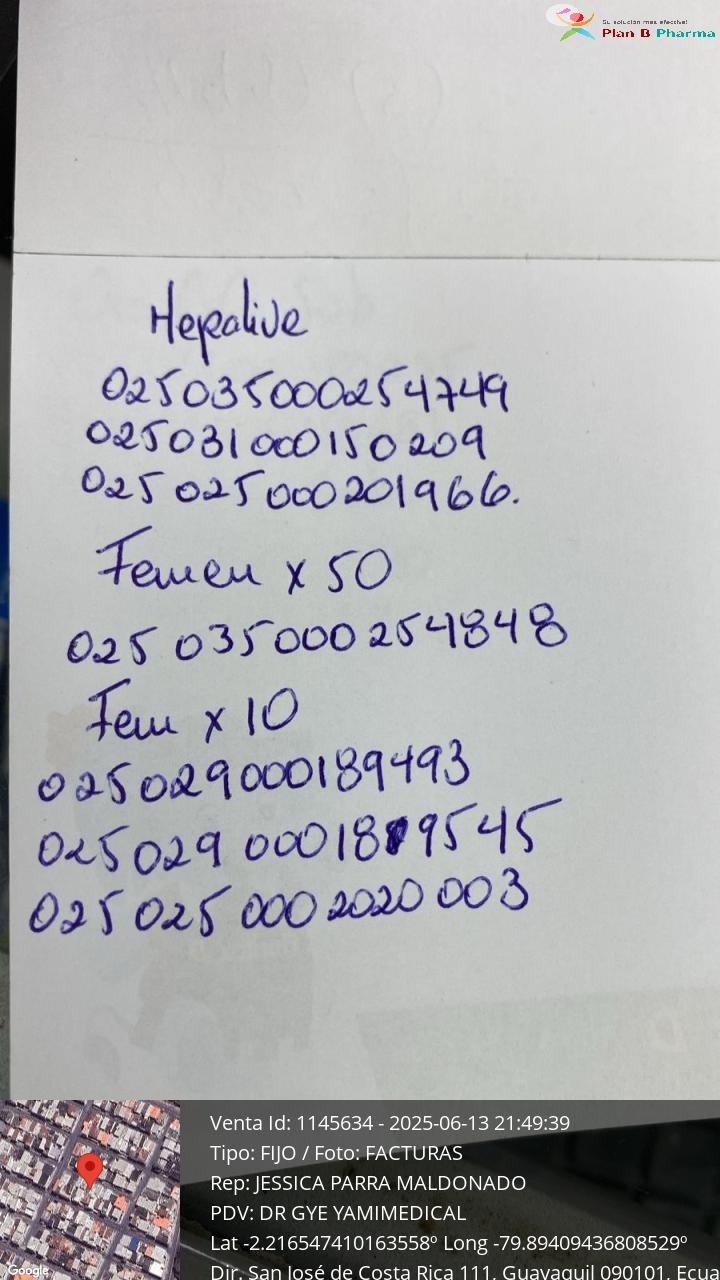 Su solución más efectiva!
Plan B Pharma
Hepalive
025035000254749
025031000150209
025025000201966.
Femen x 50
025035000254848
Fem x 10
025029000189493
025029000189545
0250250002020003
Venta Id: 1145634 - 2025-06-13 21:49:39
Tipo: FIJO / Foto: FACTURAS
Rep: JESSICA PARRA MALDONADO
PDV: DR GYE YAMIMEDICAL
Lat -2.216547410163558º Long -79.89409436808529º
Dir. San José de Costa Rica 111, Guayaquil 090101, Ecua
Google